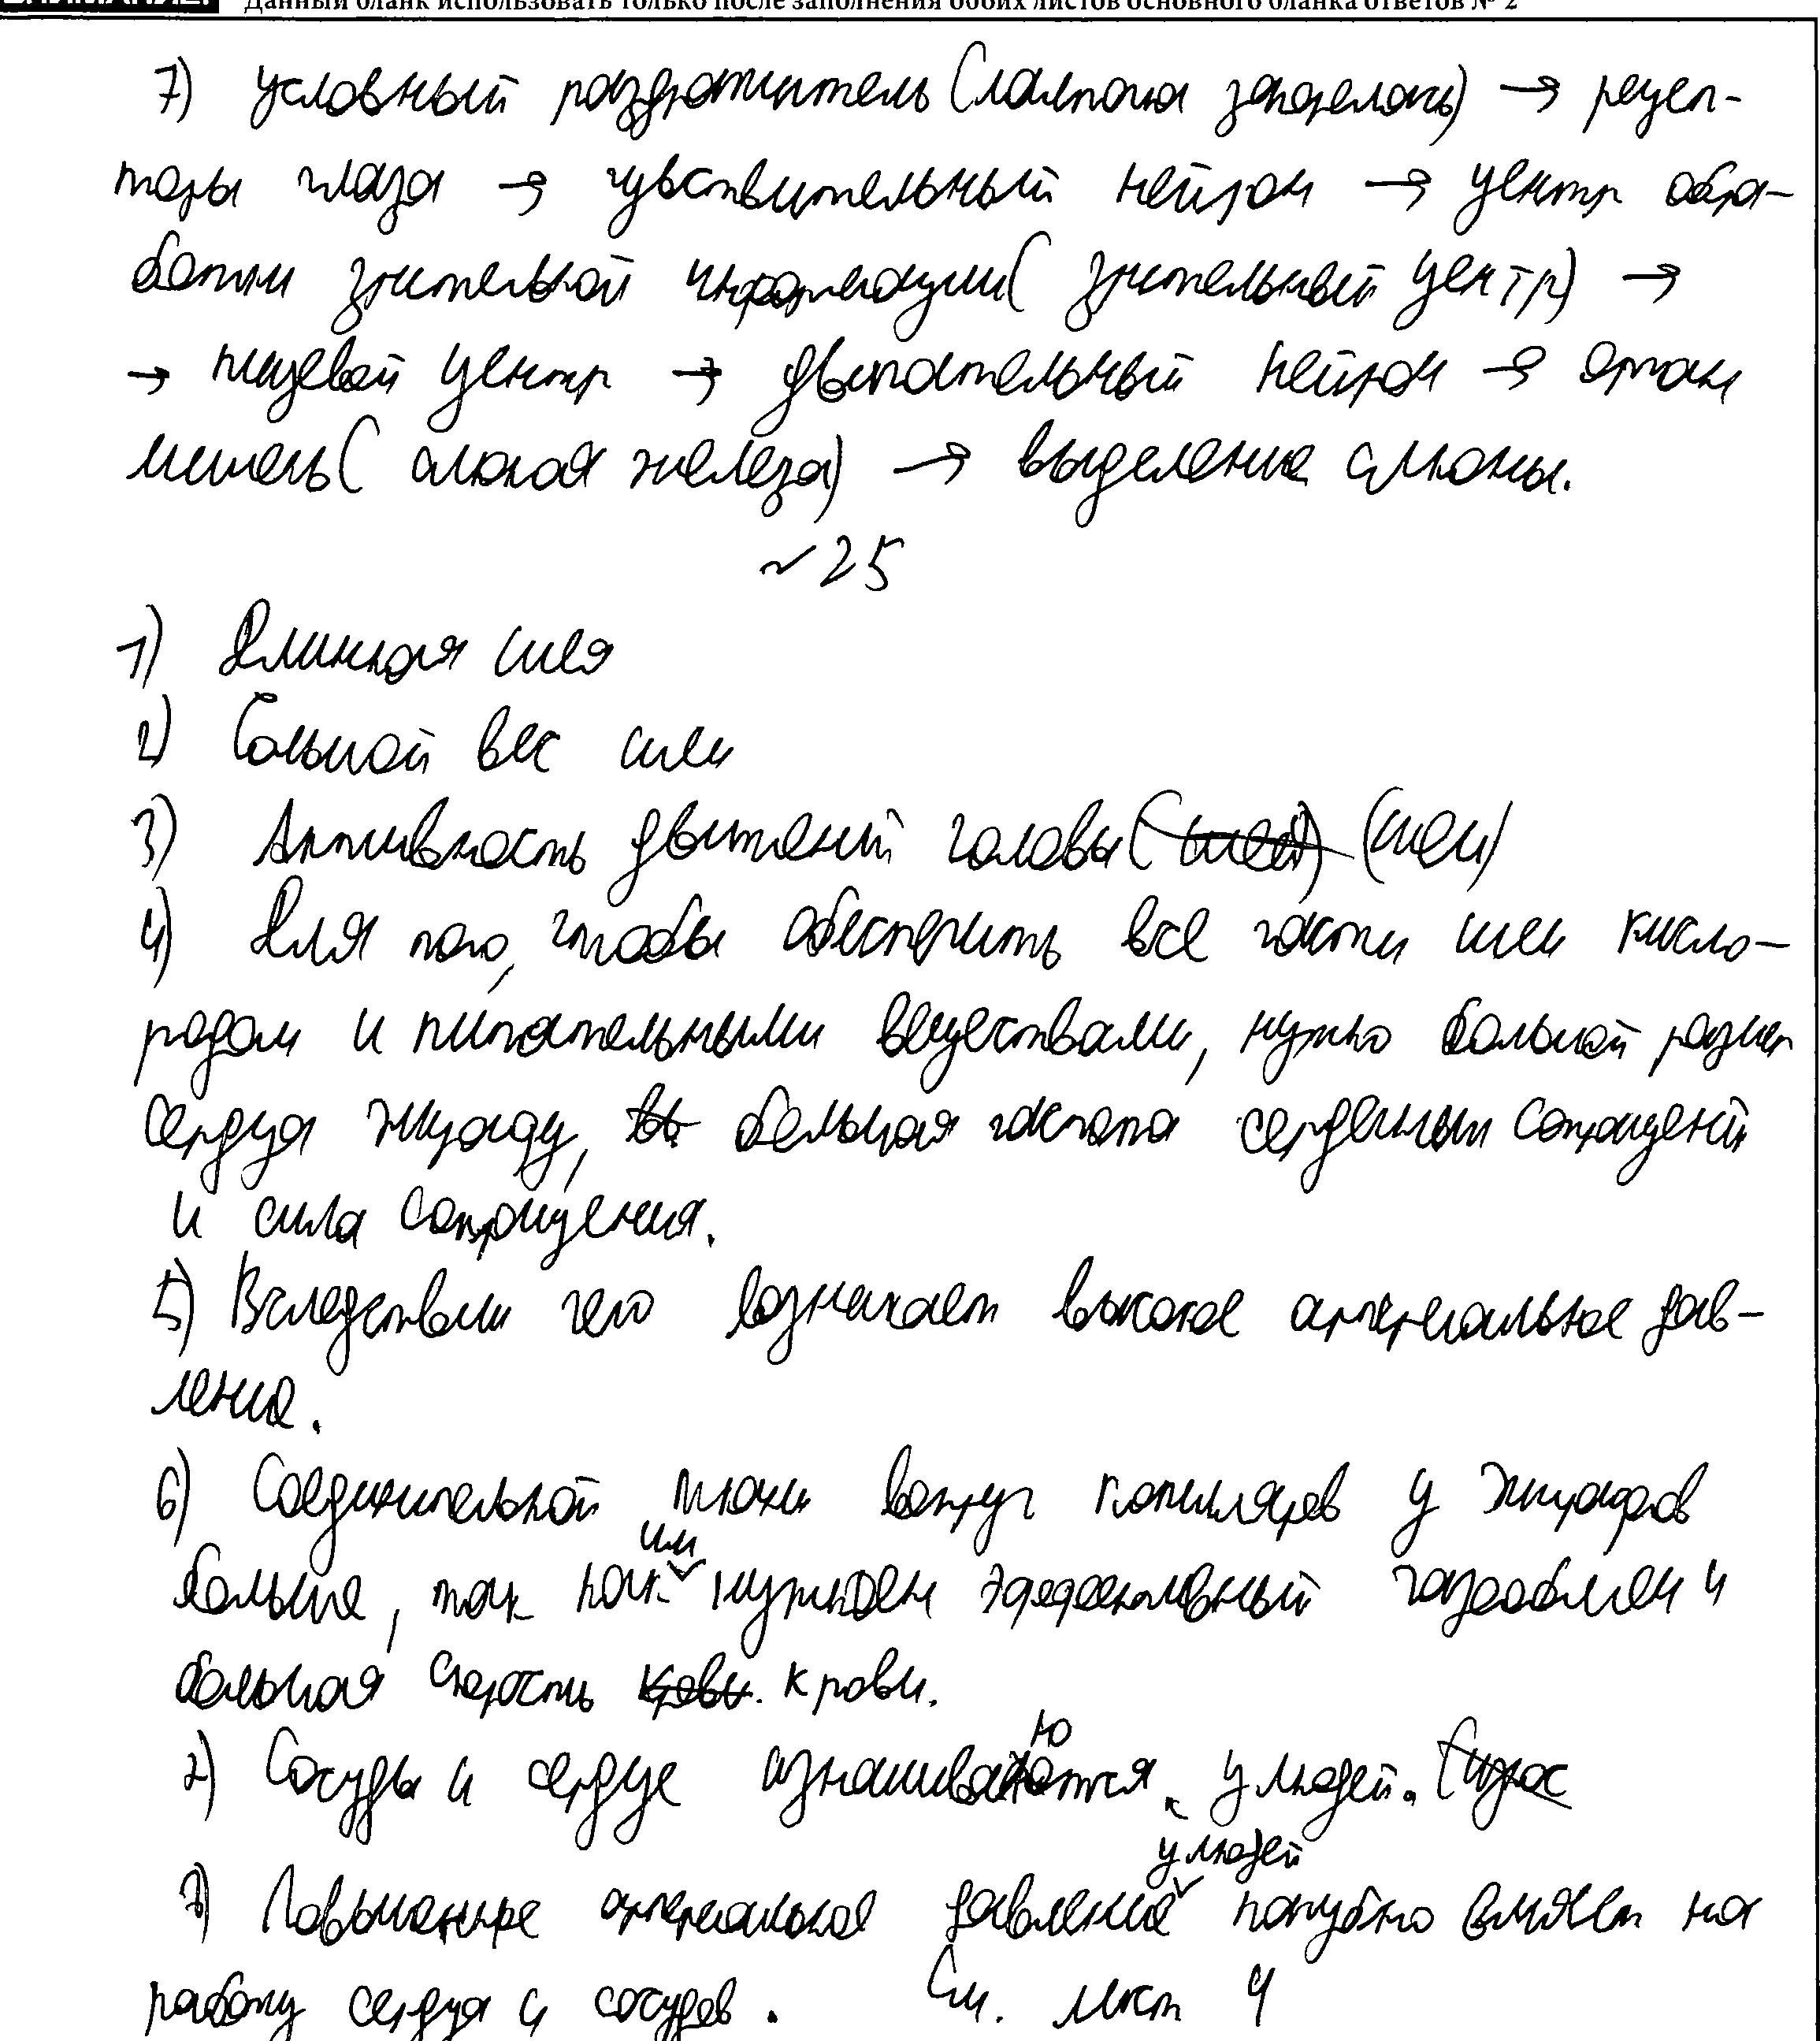 ВНИМАНИЕ! Данный бланк использовать только после заполнения обоих листов основного бланка ответов № 2
7) условный раздражитель (лампочка загорелась) → рецеп-
торы глаза → чувствительный нейрон → центр обра-
ботки зрительной информации (зрительный центр) →
→ пищевой центр → двигательный нейрон → орган
мишень (слюная железа) → выделение слюны.
№25
1) Длинная шея
2) Большой вес шеи
3) Активность движений головы (шеи)
4) Для того, чтобы обеспечить все части шеи кисло-
родом и питательными веществами, нужно большой размер
сердца жирафу, большая частота сердечных сокращений
и сила сокращения.
5) Вследствии чего возникает высокое артериальное дав-
ление.
6) Соединительной ткани вокруг капилляров у жирафов
больше, так как им нужен эффективный газообмен и
большая скорость крови.
7) Сосуды и сердце изнашиваются у людей.
7) Повышенное артериальное давление у людей пагубно влияет на
работу сердца и сосудов. См. лист 4